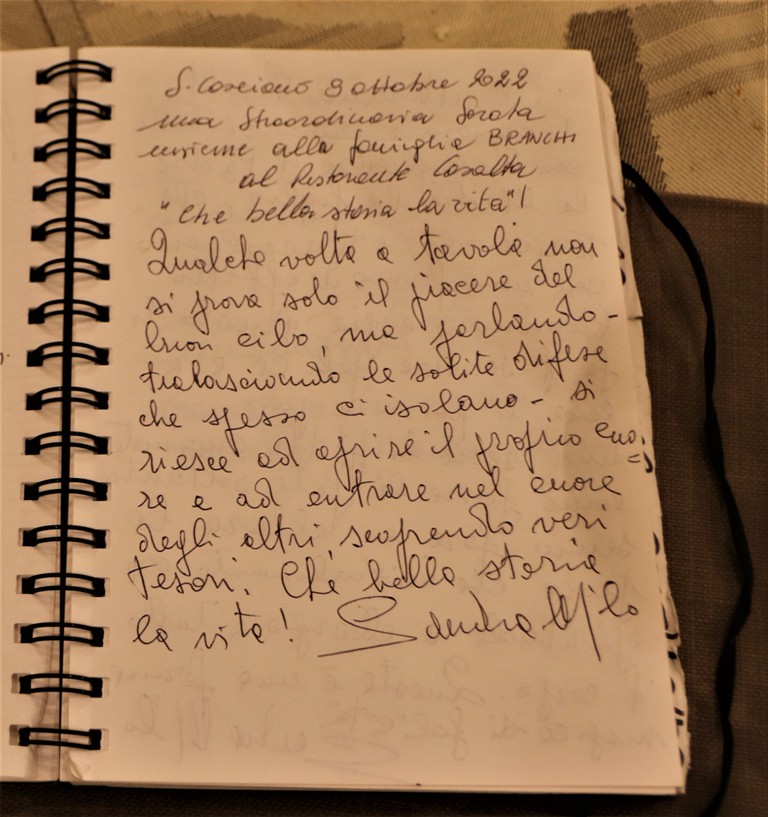 S. Casciano 9 ottobre 2022
una Straordinaria Serata
insieme alla famiglia BRANCHI
al Ristorante Casalta
"Che bella storia la vita"!
Qualche volta a tavola non
si prova solo il piacere del
buon cibo, ma parlando -
tralasciando le solite difese
che spesso ci isolano - si
riesce ad aprire il proprio cuo=
re e ad entrare nel cuore
degli altri, scoprendo veri
tesori. Che bella storia
la vita! Sandra Milo